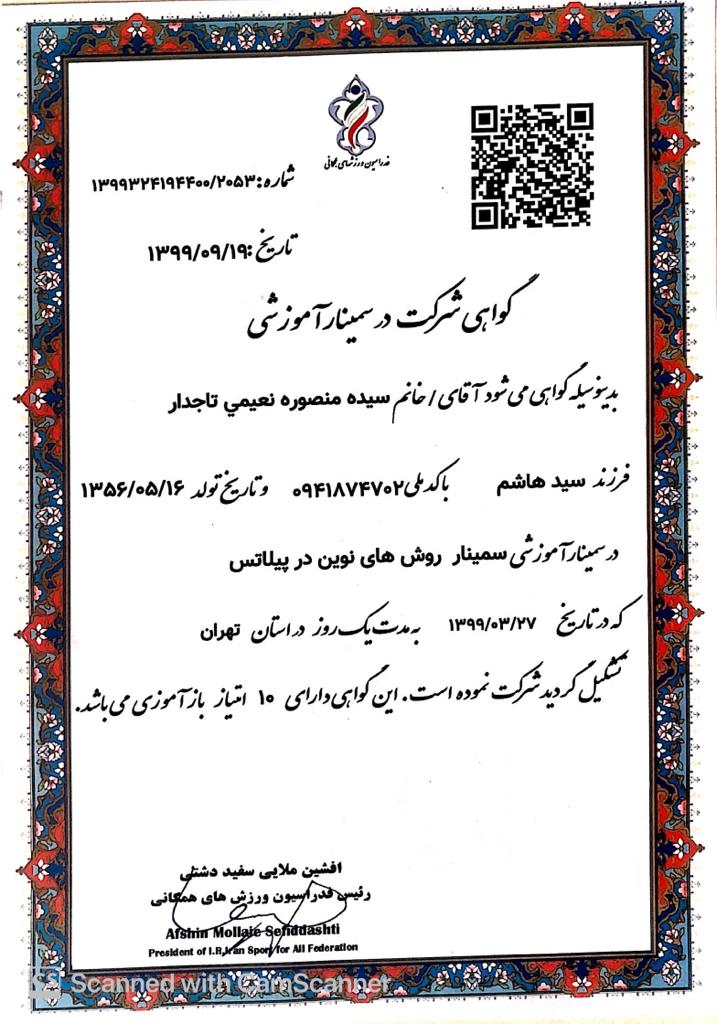 فدراسیون ورزشهای همگانی
شماره: ۱۳۹۹۳۲۴۱۹۴۴۰۰/۲۰۵۳
تاریخ: ۱۳۹۹/۰۹/۱۹
گواهی شرکت در سمینار آموزشی
بدینوسیله گواهی می شود آقای / خانم سیده منصوره نعیمي تاجدار
فرزند سید هاشم با کد ملی ۰۹۴۱۸۷۴۷۰۲ و تاریخ تولد ۱۳۵۶/۰۵/۱۶
در سمینار آموزشی سمینار روش های نوین در پیلاتس
که در تاریخ ۱۳۹۹/۰۳/۲۷ به مدت یک روز در استان تهران
تشکیل گردید شرکت نموده است. این گواهی دارای ۱۰ امتیاز بازآموزی می باشد.
افشین ملایی سفید دشتی
رئیس فدراسیون ورزش های همگانی
Afshin Mollaie Sefiddashti
President of I.R.Iran Sport for All Federation
CS Scanned with CamScanner